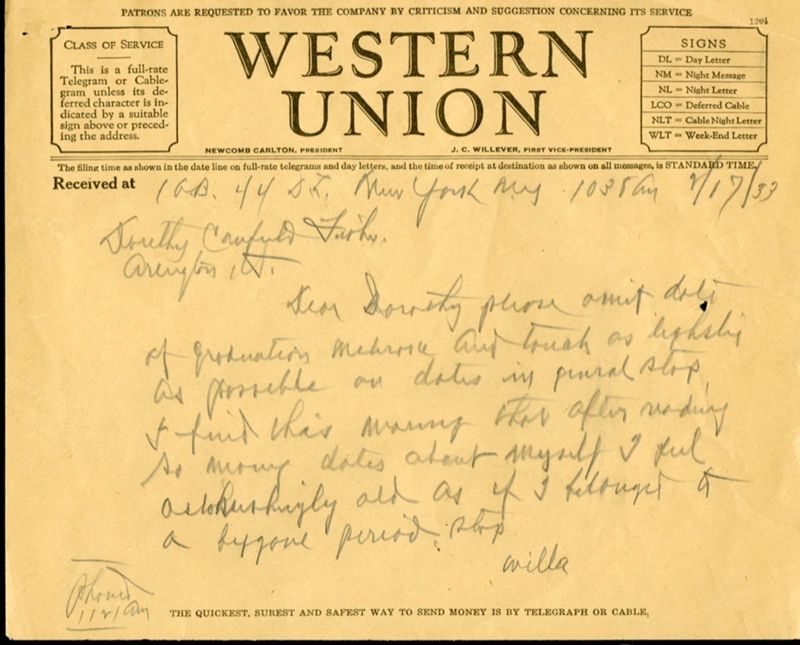 PATRONS ARE REQUESTED TO FAVOR THE COMPANY BY CRITICISM AND SUGGESTION CONCERNING ITS SERVICE
1204
CLASS OF SERVICE
This is a full-rate
Telegram or Cable-
gram unless its de-
ferred character is in-
dicated by a suitable
sign above or preced-
ing the address.
WESTERN
UNION
NEWCOMB CARLTON, PRESIDENT
J. C. WILLEVER, FIRST VICE-PRESIDENT
SIGNS
DL = Day Letter
NM = Night Message
NL = Night Letter
LCO = Deferred Cable
NLT = Cable Night Letter
WLT = Week-End Letter
The filing time as shown in the date line on full-rate telegrams and day letters, and the time of receipt at destination as shown on all messages, is STANDARD TIME.
Received at
44 New York NY 1035am 2/17/33
Dorothy Canfield Fisher.
Arlington, Vt.
Dear Dorothy please omit date
of graduation and touch as lightly
as possible on dates in general stop
I find this morning that after reading
so many dates about myself I feel
astonishingly old as if I belonged to
a bygone period. stop
Willa
Phoned
1121am
THE QUICKEST, SUREST AND SAFEST WAY TO SEND MONEY IS BY TELEGRAPH OR CABLE.